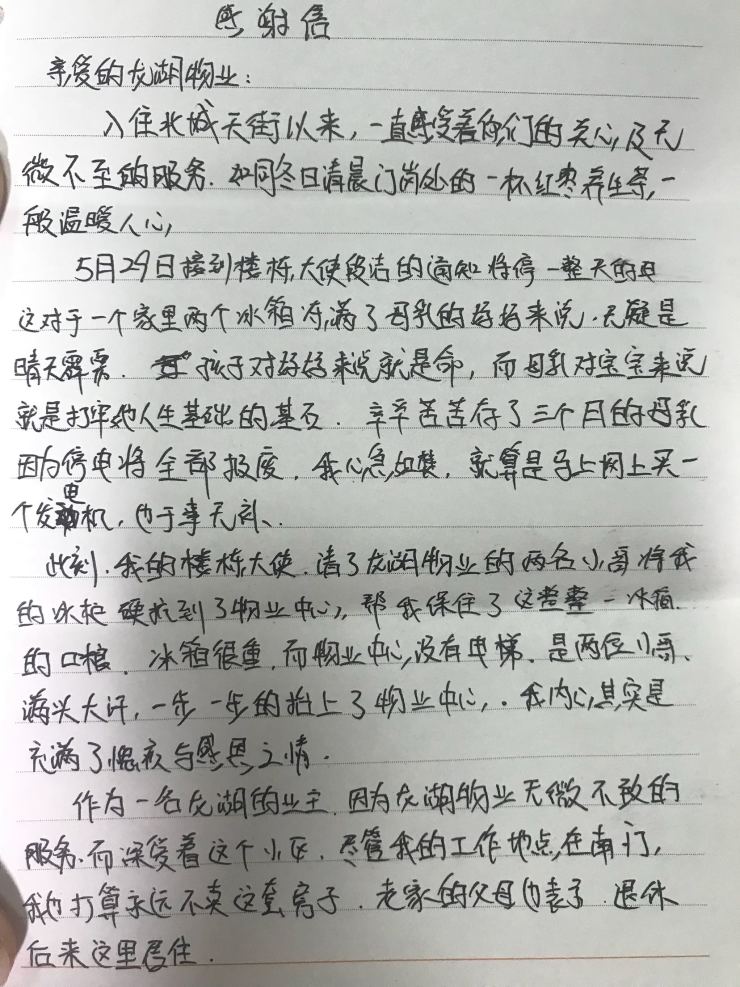 感谢信
亲爱的龙湖物业：
入住北城天街以来，一直感受着你们的关心及无
微不至的服务.如同冬日清晨门岗处的一杯红枣养生茶,一
般温暖人心,
5月29日接到楼栋大使段洁的通知将停一整天的电
这对于一个家里两个冰箱冻满了母乳的妈妈来说.无疑是
晴天霹雳.孩子对妈妈来说就是命，而母乳对宝宝来说
就是打牢她人生基础的基石.辛辛苦苦存了三个月的母乳
因为停电将全部报废.我心急如焚.就算是马上网上买一
个发电机，也于事无补、
此刻.我的楼栋大使.请了龙湖物业的两名小哥将我
的冰柜硬抗到了物业中心，帮我保住了这整整一冰箱
的口粮.冰箱很重.而物业中心没有电梯、是两位小哥、
满头大汗,一步一步的抬上了物业中心,.我内心其实是
充满了愧疚与感恩之情.
作为一名龙湖的业主.因为龙湖物业无微不致的
服务.而深爱着这个小区.尽管我的工作地点在南门,
我也打算永远不卖这套房子.老家的父母也表示.退休
后来这里居住.